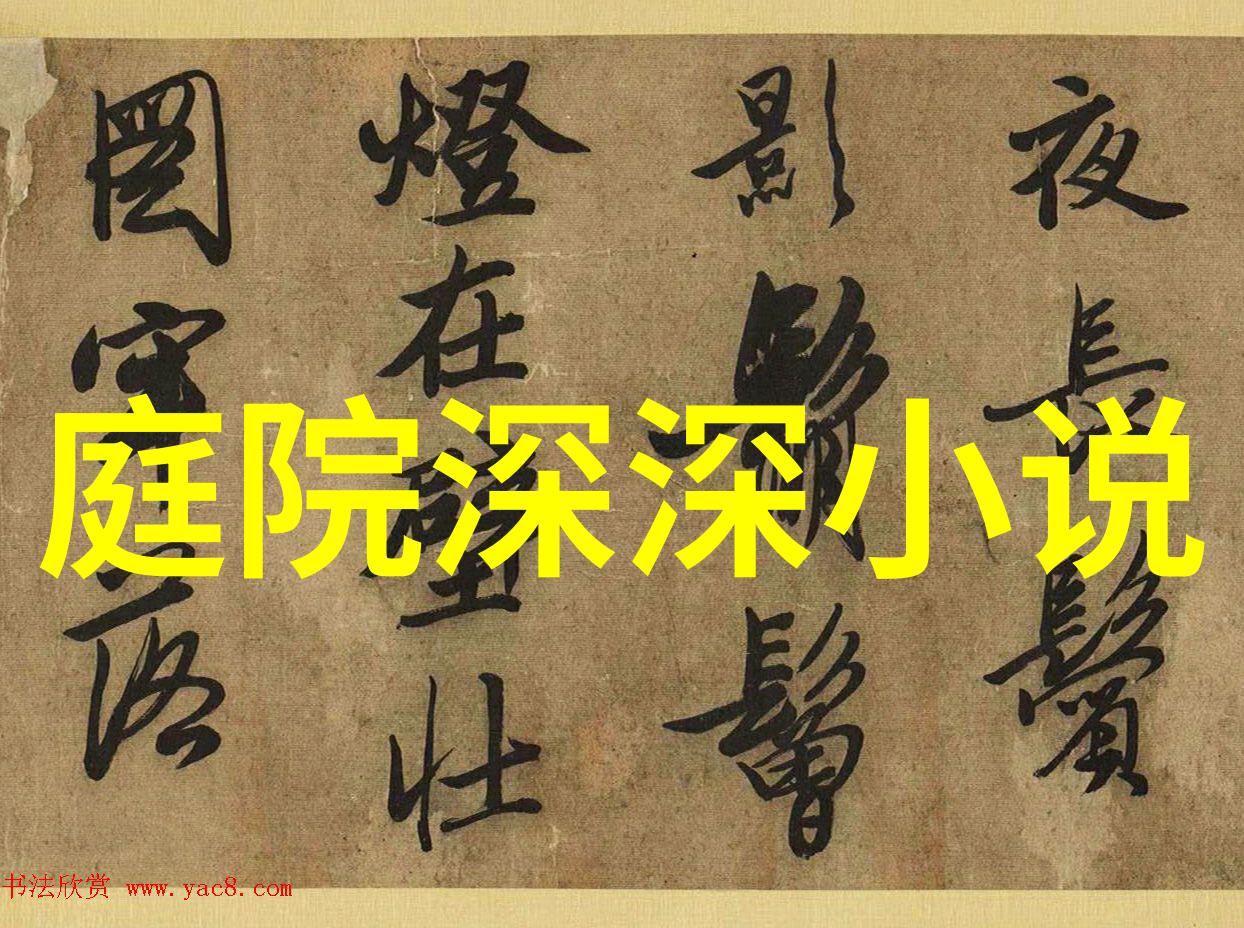 夜長鬢
影鬅鬙
燈在壁壯
圖寥落
庭院深深小说
书法欣赏 www.yac8.com